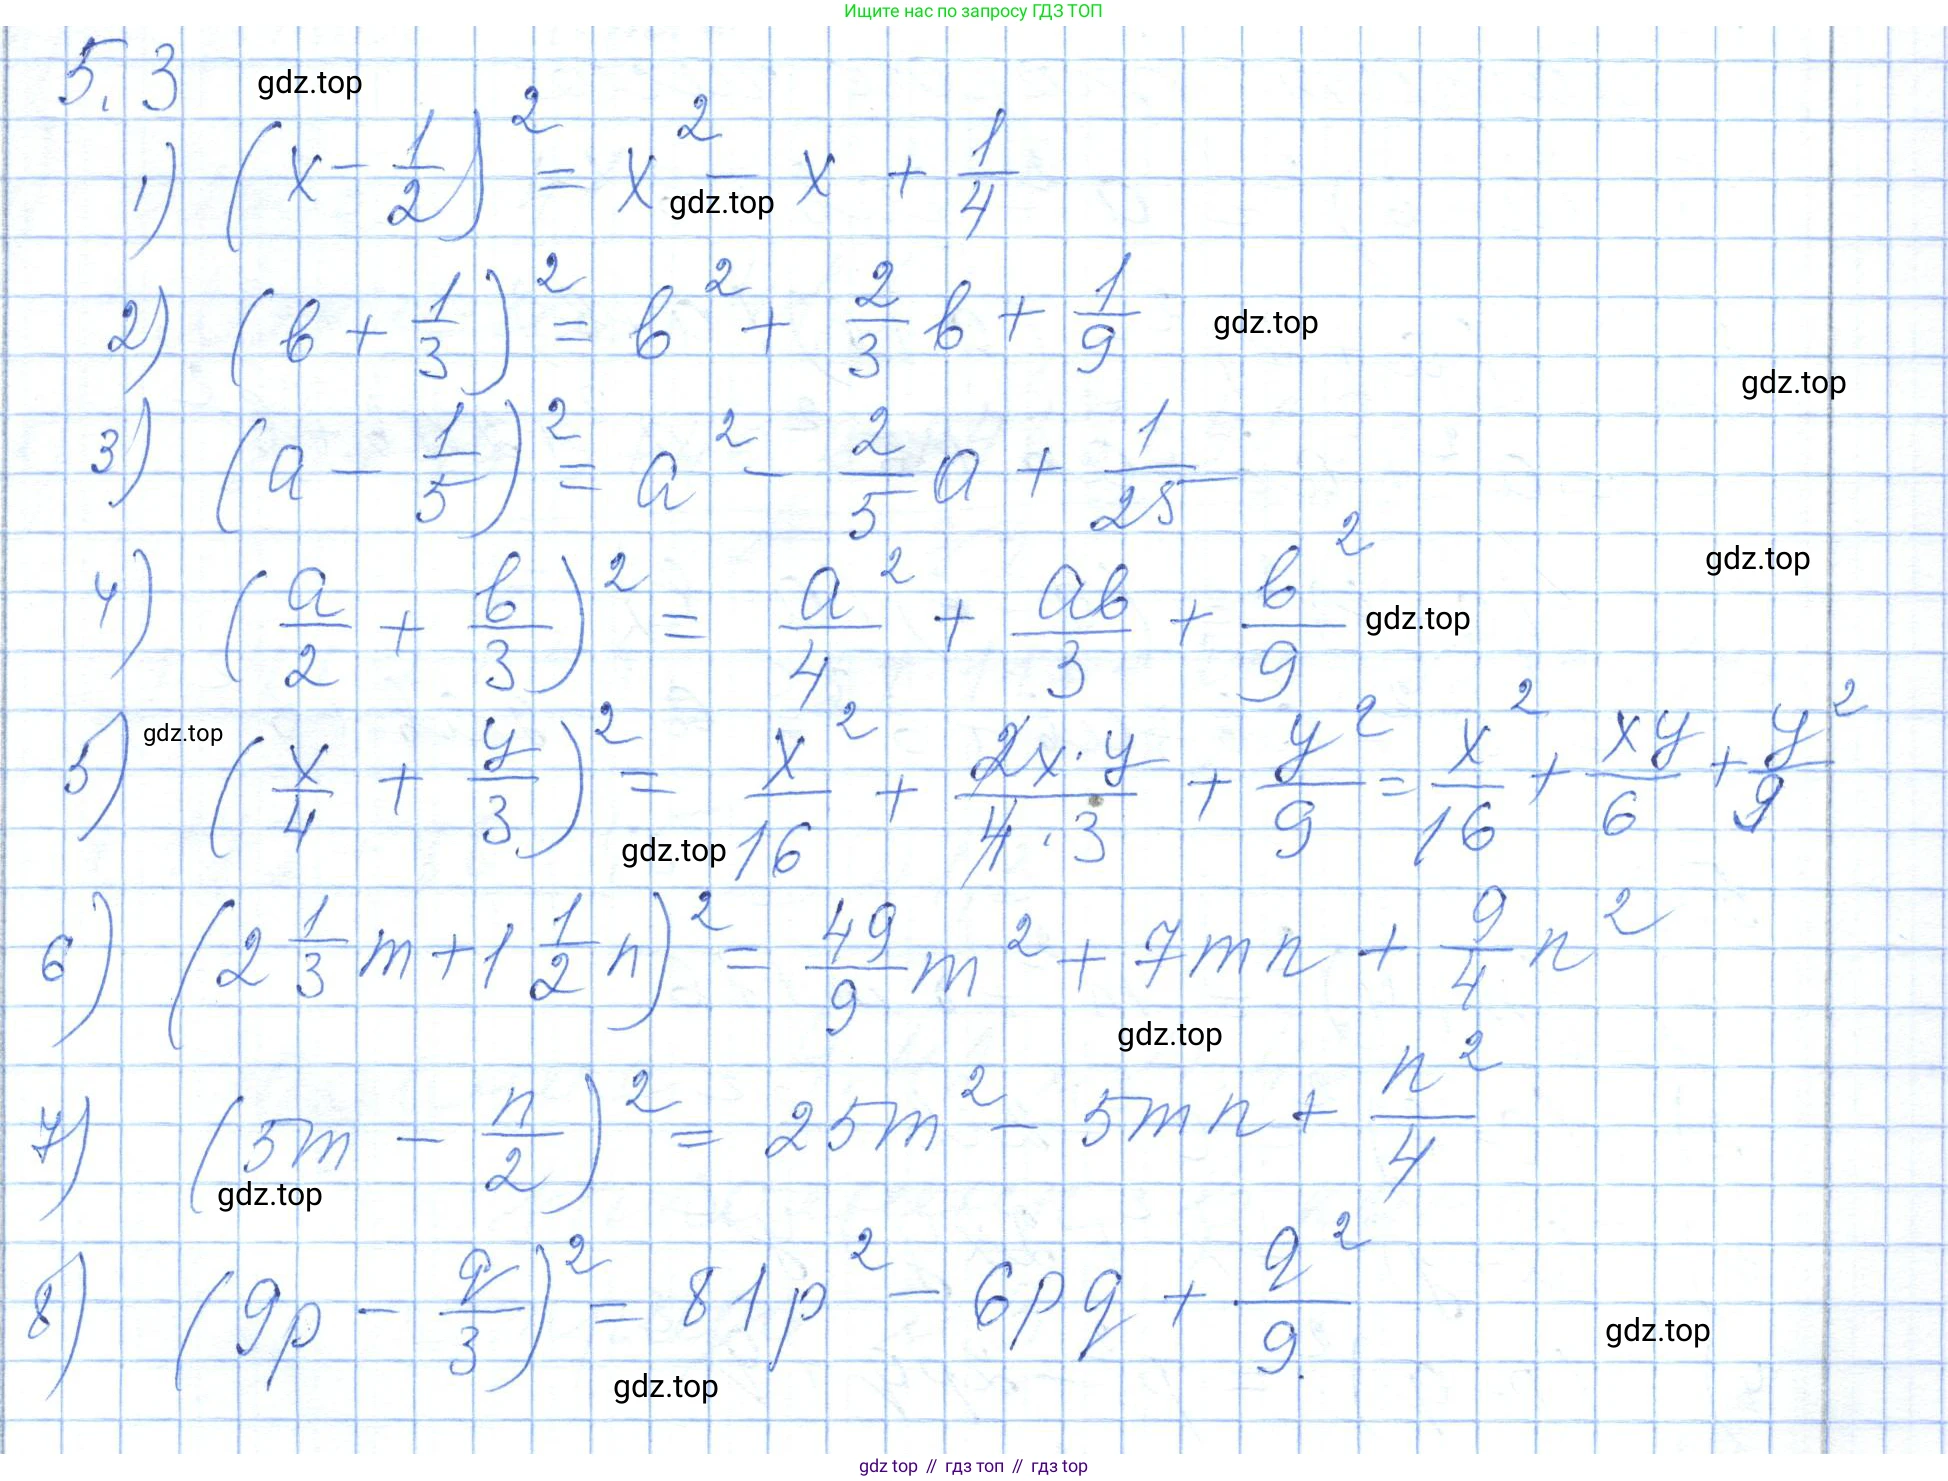 Ищите нас по запросу ГДЗ ТОП
5.3 gdz.top
1) (x - 1/2)² = x² - x + 1/4
gdz.top
2) (в + 1/3)² = в² + 2/3 в + 1/9 gdz.top
gdz.top
3) (a - 1/5)² = a² - 2/5 a + 1/25
gdz.top
4) (a/2 + в/3)² = a²/4 + aв/3 + в²/9 gdz.top
gdz.top
5) (x/4 + y/3)² = x²/16 + 2x·y/4·3 + y²/9 = x²/16 + xy/6 + y²/9
gdz.top
6) (2 1/3 m + 1 1/2 n)² = 49/9 m² + 7mn + 9/4 n²
gdz.top
7) (5m - n/2)² = 25m² - 5mn + n²/4
gdz.top
8) (9p - q/3)² = 81p² - 6pq + q²/9.
gdz.top
gdz.top
gdz top // гдз топ // гдз top